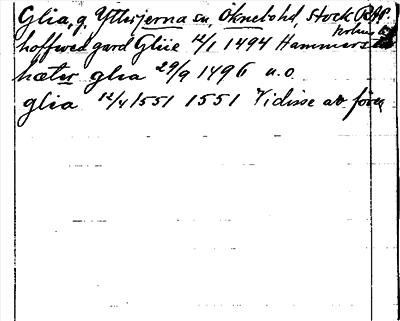 Glia, g, Ytterjerna sn, Öknebo hd, Stock RAP
holms
hoffwed gard Gliie 12/1 1494 Hammers
hæter glia 29/9 1496 u.o.
glia 12/4 1551 1551 Vidisse av föreg